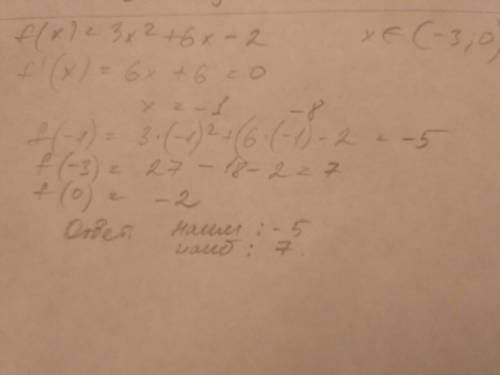 f(x) = 3x² + 6x - 2 x ∈ (-3, 0)
f'(x) = 6x + 6 = 0
x = -1 -8
f(-1) = 3·(-1)² + (6·(-1) - 2 = -5
f(-3) = 27 - 18 - 2 = 7
f(0) = -2
Ответ наим : -5
наиб : 7.